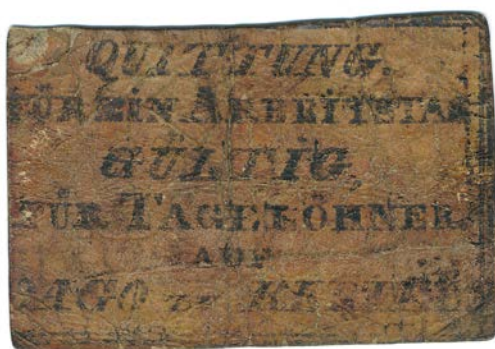 QUITTUNG,
FÜR EIN ARBEITSTAG
GÜLTIG,
FÜR TAGELÖHNER
AUF
DAGO zu KERTEL